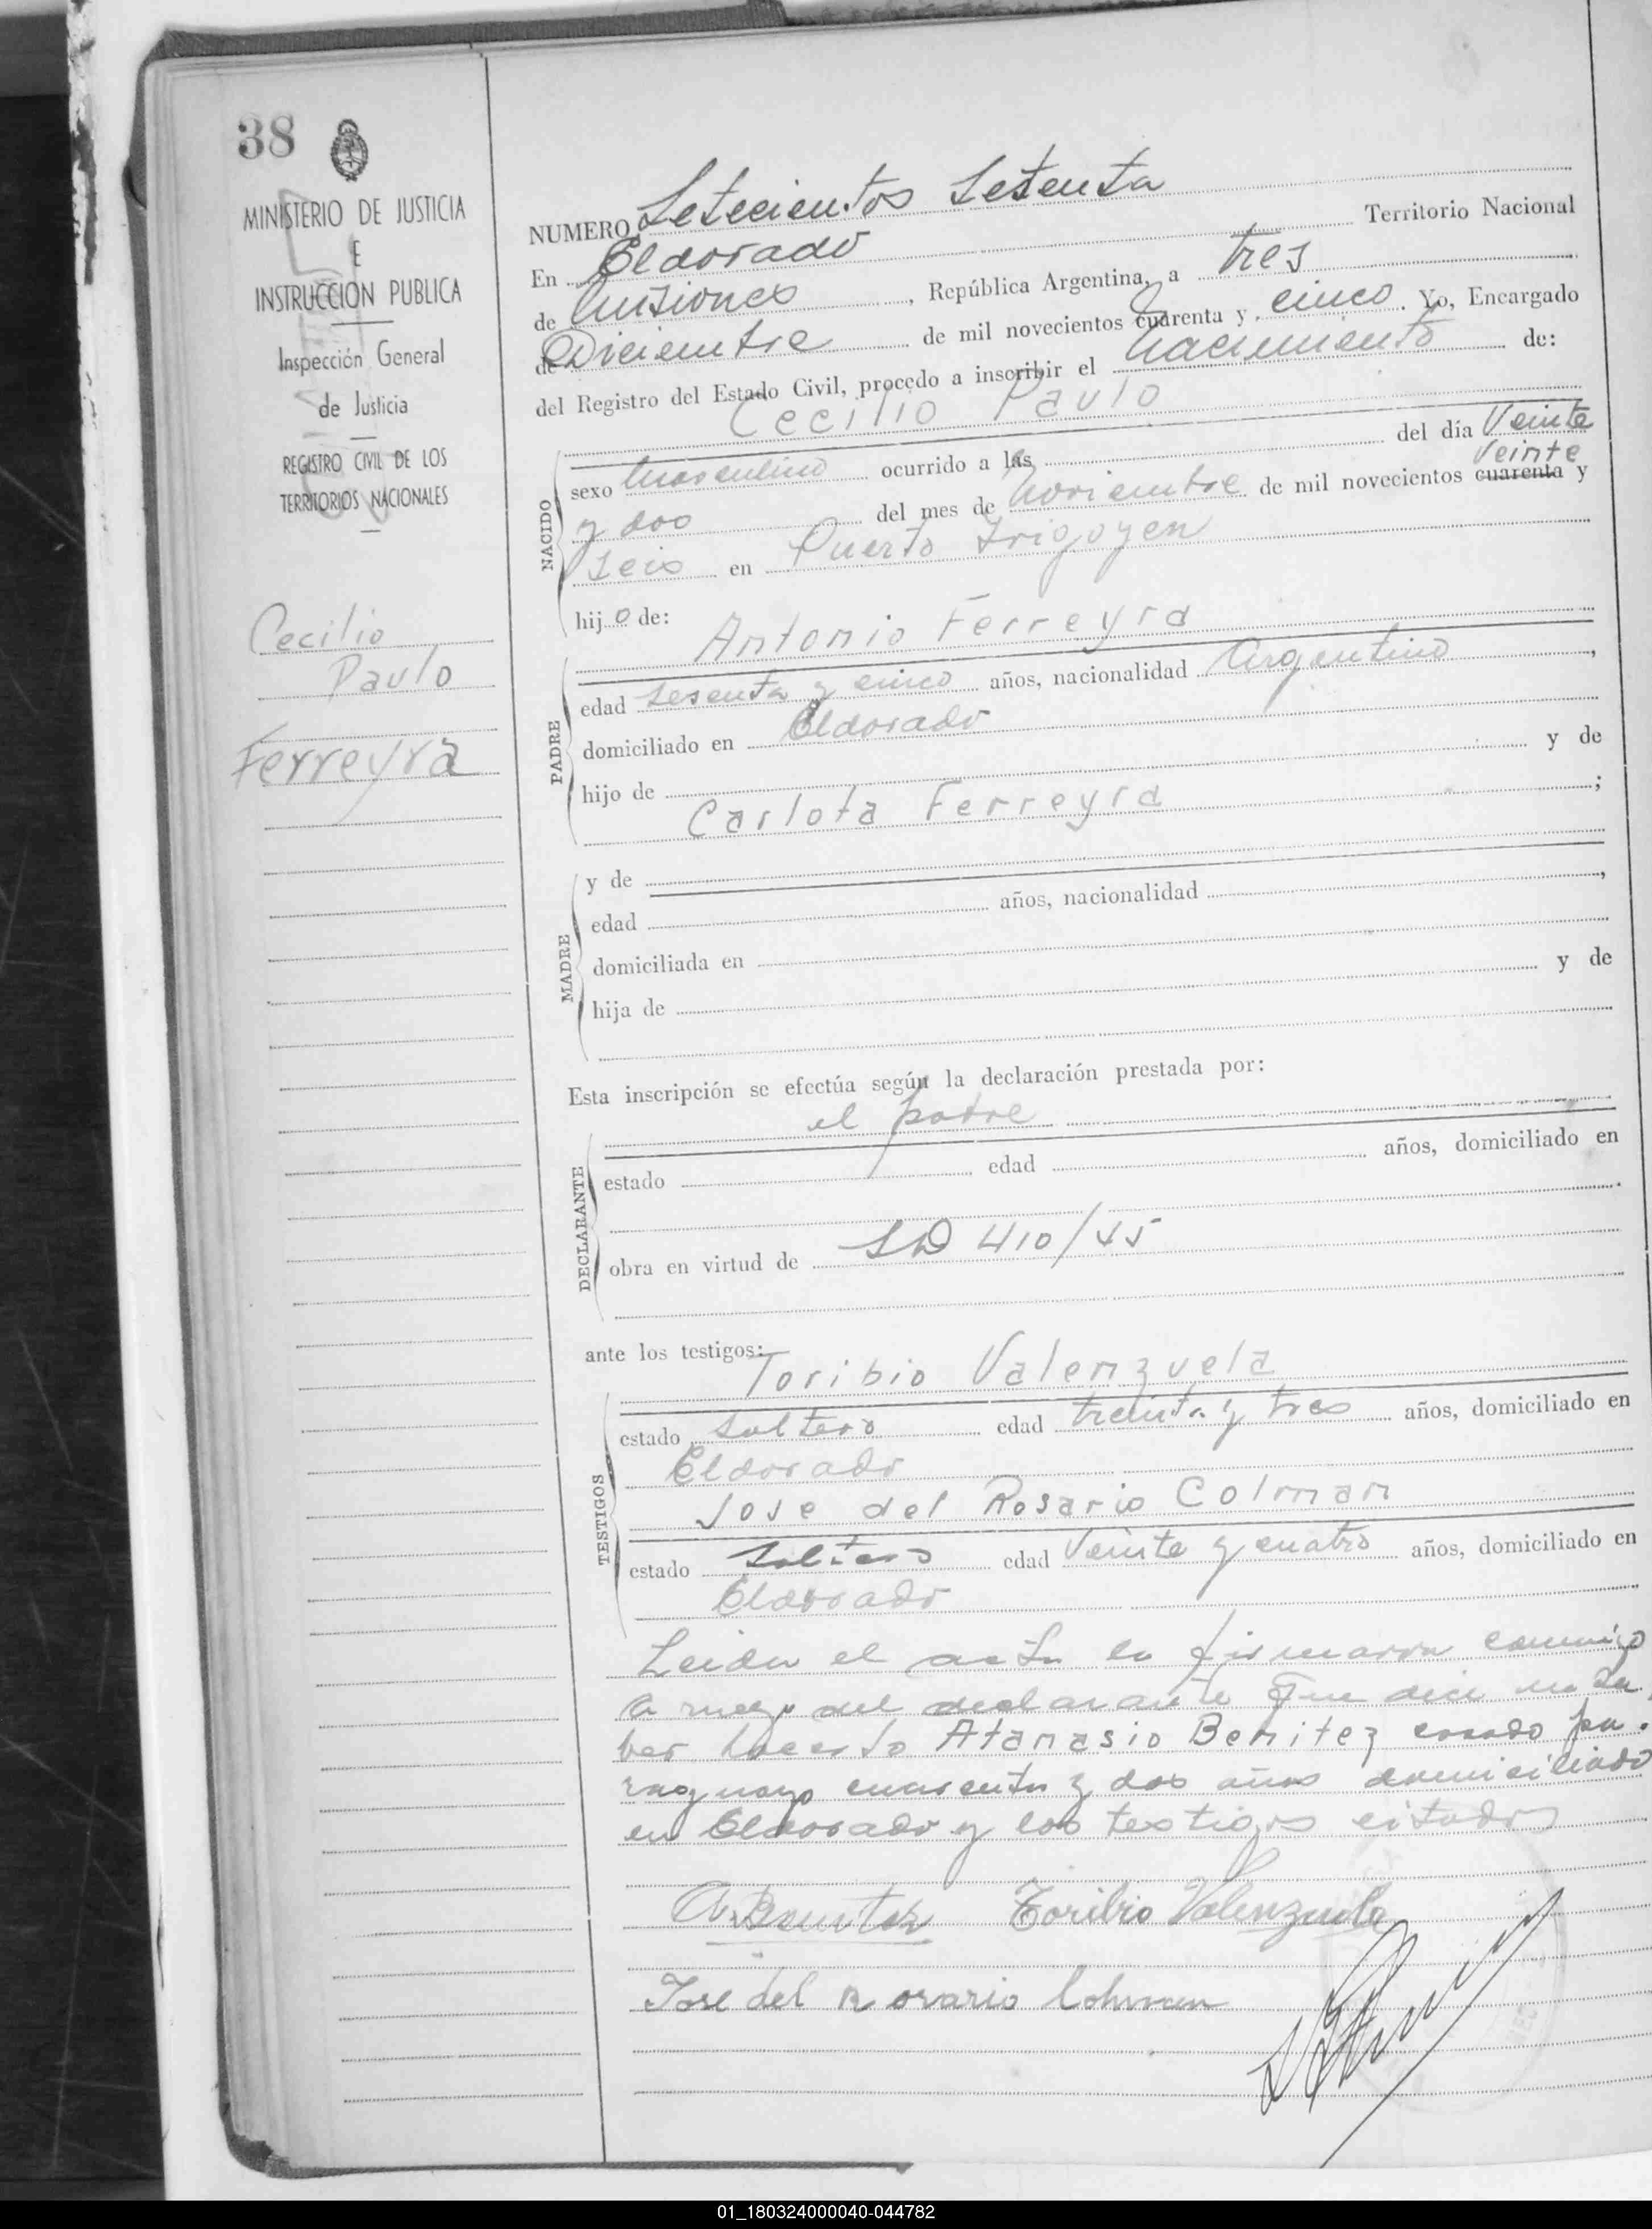 38
MINISTERIO DE JUSTICIA
E
INSTRUCCION PUBLICA
Inspección General
de Justicia
REGISTRO CIVIL DE LOS
TERRITORIOS NACIONALES
Cecilio
Paulo
Ferreyra
NUMERO Setecientos Setenta
En Eldorado Territorio Nacional
de Misiones, República Argentina, a tres
de Diciembre de mil novecientos cuarenta y cinco. Yo, Encargado
del Registro del Estado Civil, procedo a inscribir el nacimiento de:
Cecilio Paulo
NACIDO
sexo masculino ocurrido a las del día Veinte
y dos del mes de noviembre de mil novecientos cuarenta y
veinte
seis en Puerto Irigoyen
hijo de:
Antonio Ferreyra
PADRE
edad sesenta y cinco años, nacionalidad Argentino,
domiciliado en Eldorado
hijo de y de
Carlota Ferreyra;
MADRE
y de
edad años, nacionalidad,
domiciliada en
hija de y de
Esta inscripción se efectúa según la declaración prestada por:
el padre
DECLARANTE
estado edad años, domiciliado en
obra en virtud de SD 410/45
ante los testigos:
Toribio Valenzuela
TESTIGOS
estado soltero edad treinta y tres años, domiciliado en
Eldorado
Jose del Rosario Colman
estado soltero edad Veinte y cuatro años, domiciliado en
Eldorado
Leida el acta la firmaron conmigo
a ruego del declarante que dice no sa
ber hacerlo Atanasio Benitez casado pa
raguayo cuarenta y dos años domiciliado
en Eldorado y los testigos citados
A. Benitez Toribio Valenzuela
Jose del Rosario Colman
01_180324000040-044782